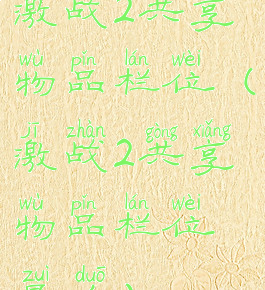 激战2共享
wù pǐn lán wèi
物品栏位（
jī zhàn gòng xiǎng
激战2共享
wù pǐn lán wèi
物品栏位
zuì duō